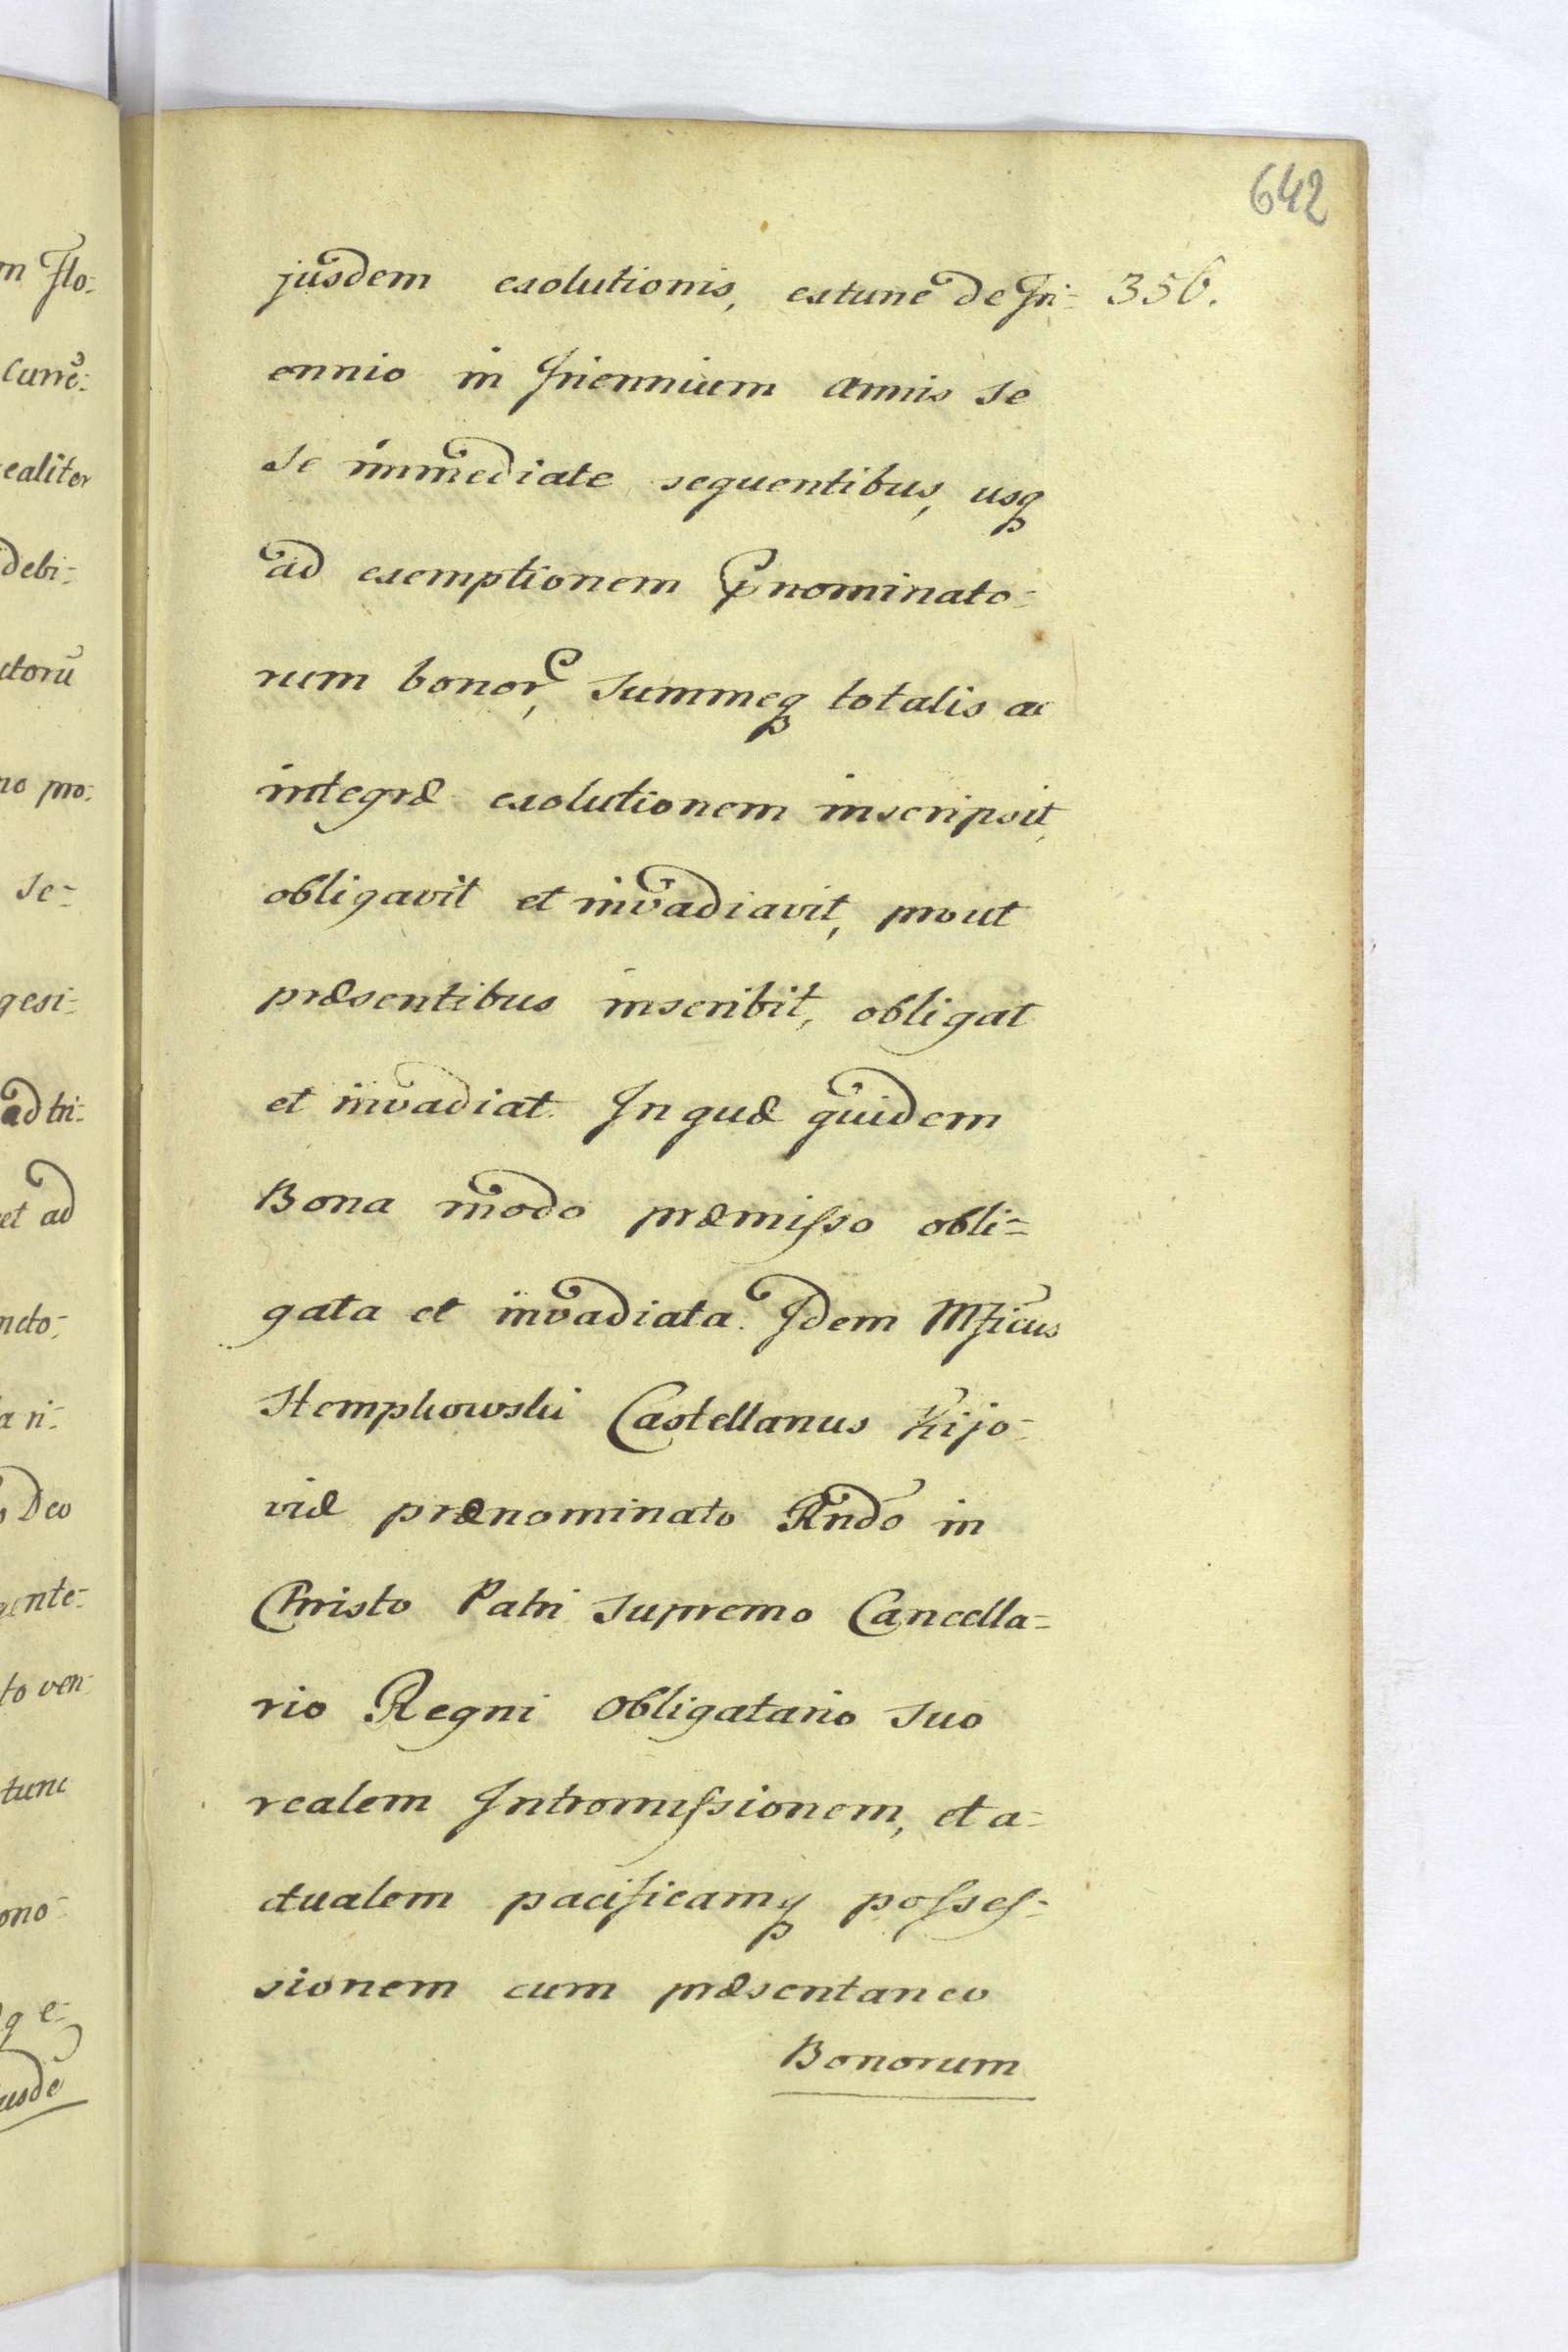 642
jusdem exolutionis, extunc de Tri= 356.
ennio in Triennium annis se
se immediate sequentibus, usq
ad exemptionem pnominato=
rum bonor, summeq totalis ac
integræ exolutionem inscripsit,
obligavit et invadiavit, prout
præsentibus inscribit, obligat
et invadiat. In quæ quidem
Bona modo præmisso obli=
gata et invadiata. Idem Mficus
Stempkowski Castellanus Kijo=
viæ prænominato Rndo in
Christo Patri Supremo Cancella=
rio Regni Obligatario suo
realem Intromissionem, et a=
ctualem pacificamq posses=
sionem cum præsentaneo
Bonorum
m Flo=
curre=
ealiter
debi=
ctorũ
no pro=
se=
gesi=
ad tri=
et ad
ncto=
a ri=
Deo
gente=
to ven=
tunc
ono=
q e=
usdē